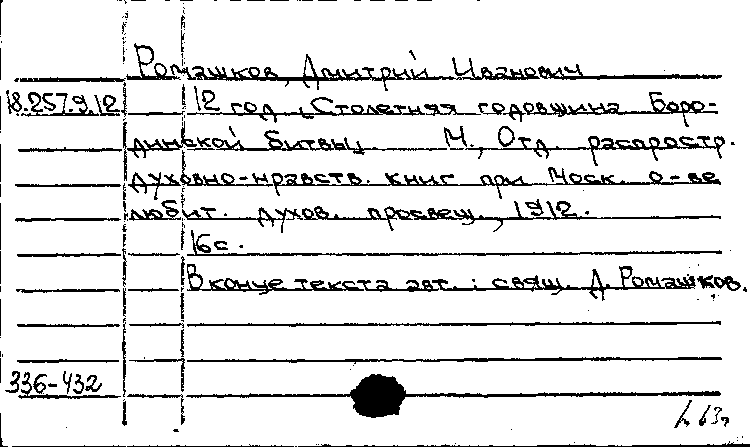 Ромашков, Дмитрий Иванович
18.257.9.12 12 год. Столетняя годовщина Боро-
динской битвы. М., Отд. распростр.
духовно-нравств. книг при Моск. о-ве
любит. духов. просвещ., 1912.
16 с.
В конце текста авт.: свящ. Д. Ромашков.
336-432